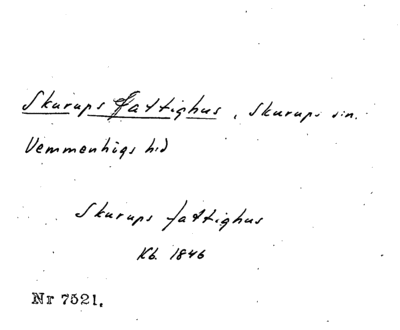 Skurups Fattighus, Skurups sn.
Vemmenhögs hd
Skurups fattighus
Kb. 1846
Nr 7521.